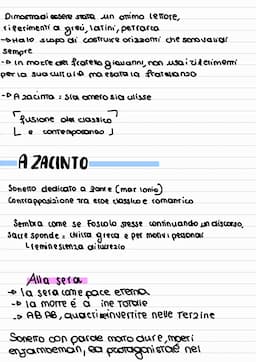 Dimostra di essere stato un ottimo lettore,
riferimenti a greci, latini, petrarca
→ Ha lo scopo di costruire orizzonti che sono validi
sempre
→ In morte del fratello giovanni, non usa i riferimenti
per la sua cultura ma esalta la fratellanza
→ A zacinto = sia omero sia ulisse
fusione del classico
e contemporaneo
A ZACINTO
Sonetto dedicato a Zante (mar Ionio)
Contrapposizione tra eroe classico e romantico
Sembra come se Foscolo stesse continuando un discorso,
Sacre sponde = civiltà greca e per motivi personali
reminescenza di lucrezio
Alla sera
→ la sera come pace eterna
→ la morte è a ine totale
→ AB AB, quadri invertire nelle terzine
Sonetto con parole molto dure,
enjambeman, ed protagoniste nel